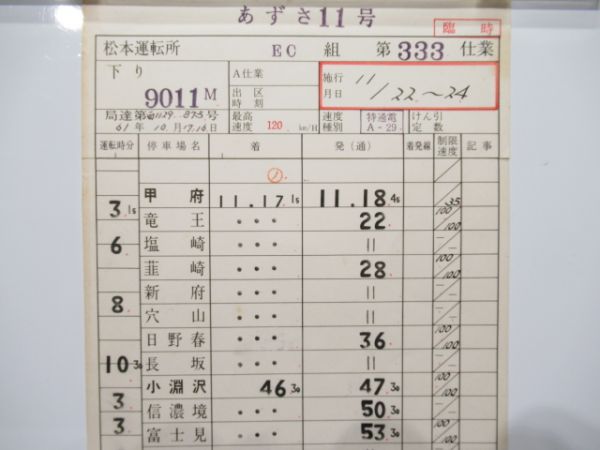 あずさ11号
臨時
松本運転所 EC 組 第333仕業
下り 9011M
A仕業
出区時刻
施行月日 11/22〜24
61年10月17,16日
最高速度 120 km/H
速度種別 特通電 A-29
けん引定数
運転時分 停車場名 着 発(通) 着発線 制限速度 記事
甲府 11.17 15 11.18 45 35
3 15
竜王 ・・・ 22 100/100
6
塩崎 ・・・ ||
韮崎 ・・・ 28 100/100
8
新府 ・・・ ||
穴山 ・・・ ||
日野春 ・・・ 36 100/100
10 30
長坂 ・・・ ||
小淵沢 46 30 47 30 100/100
3
信濃境 ・・・ 50 30
3
富士見 ・・・ 53 30 100/100